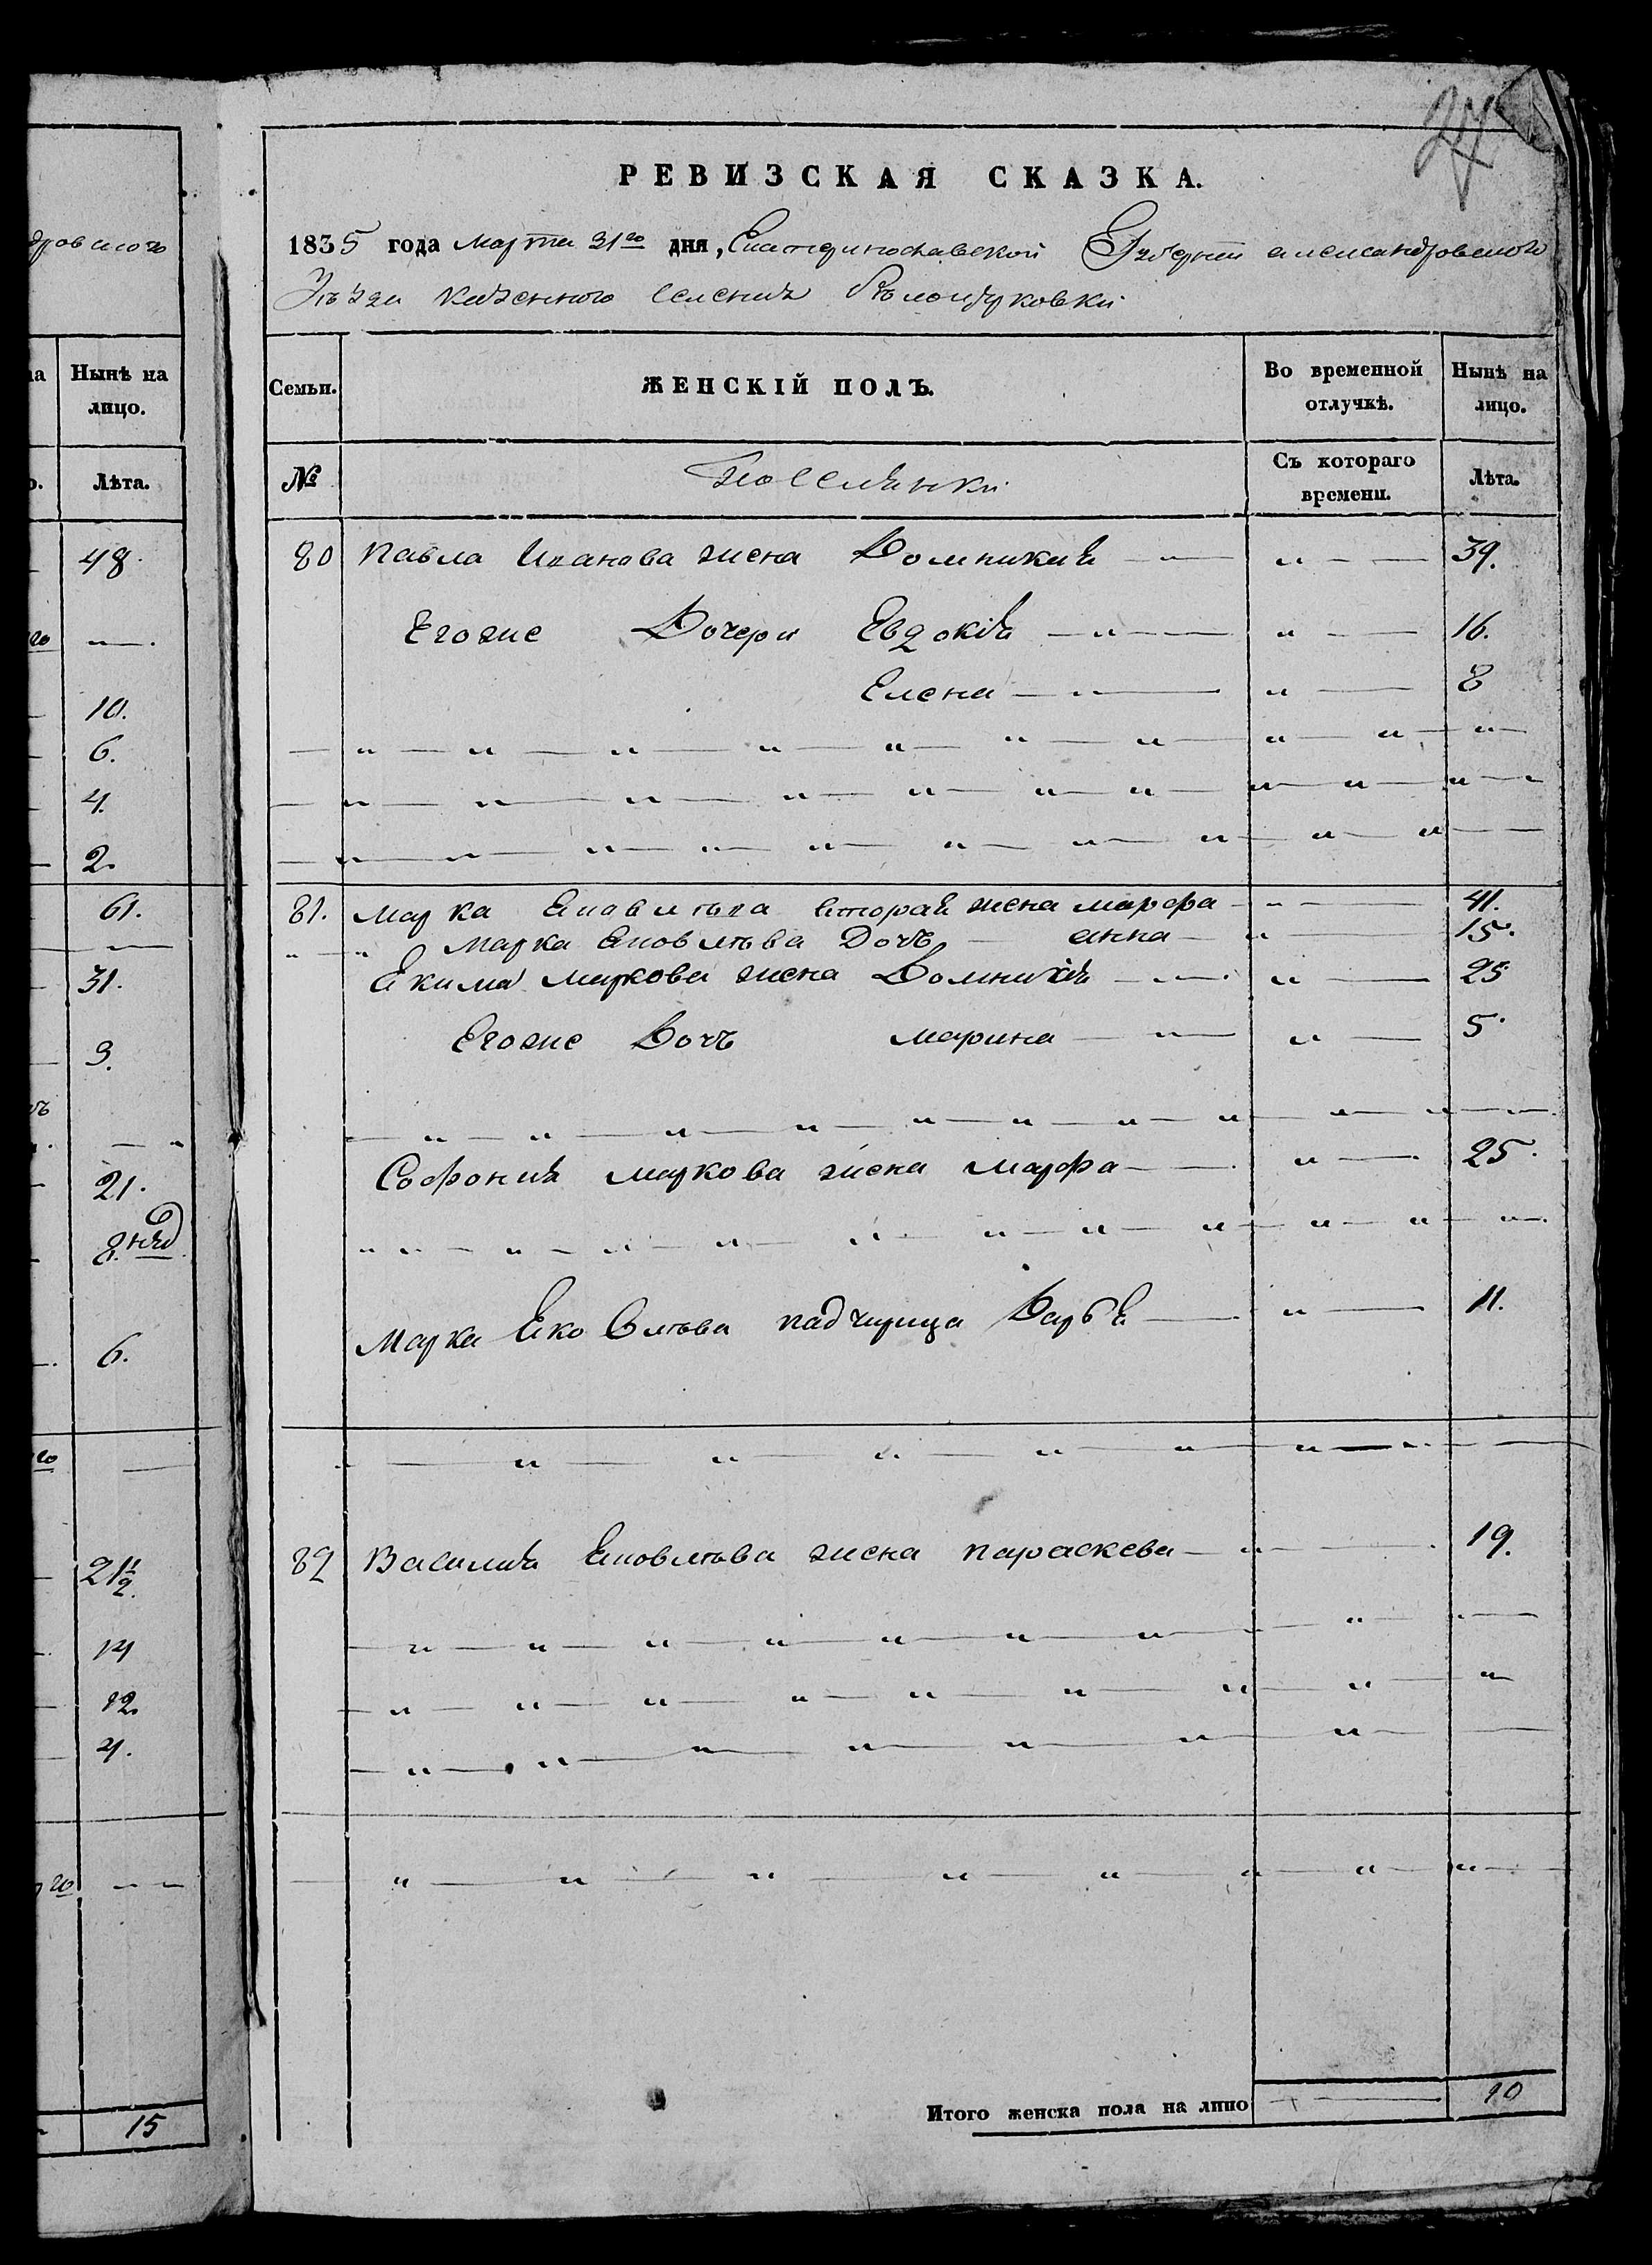 дровского
Нынѣ на
лицо.
Лѣта.
48.
го
10.
6.
4.
2.
61.
31.
3.
21.
8. нед
6.
го
21 1/2.
14
12.
4.
го
15
27
РЕВИЗСКАЯ СКАЗКА.
1835 года Марта 31го дня, Екатеринославской Губернии александровского
Уѣзда казенного селения
Семьи. ЖЕНСКІЙ ПОЛЪ. Во временной отлучкѣ. Нынѣ на лицо.
№ Поселянки Съ котораго времени. Лѣта.
80 Павла Иванова жена Домникия — " — " — 39.
Егоже Дочери Евдокія — " — " — 16.
Елена — " — " — 8
81. Марка Яковлева вторая жена марфа — " — 41.
" — " Марка Яковлева Дочь — анна — " — 15.
Якима Маркова жена Домникія — " — " — 25
Егоже Дочь марина — " — " — 5.
Софония маркова жена Марфа — " — 25.
Марка Яковлева падчерица Дарья — " — 11.
82 Василия Яковлева жена параскева — " — 19.
Итого женска пола на лицо — 10